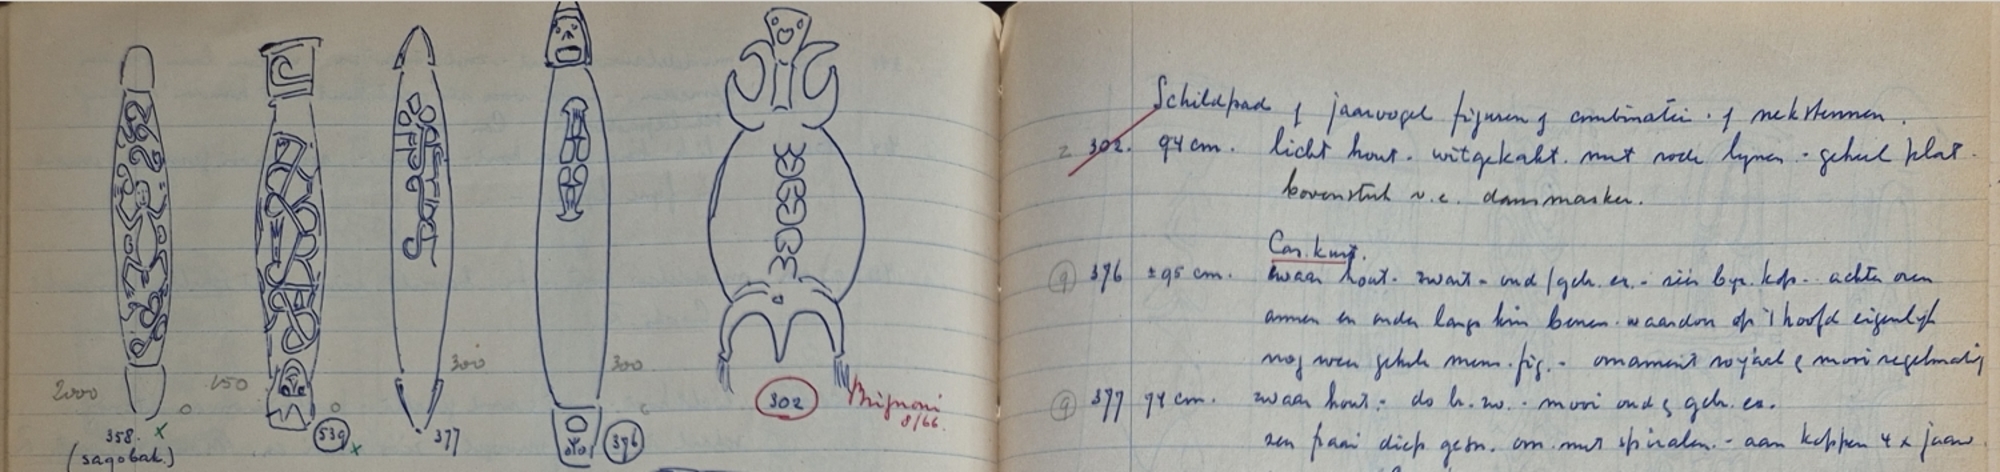 2000
358. x
(sagobak.)
150
539 x
300
377
300
376
302
Mignoni
8/66.
Schildpad & jaarvogel figuren & combinatie. & nekstennen.
z 302. 94 cm. licht hout. witgekalkt. met rode lynen. geheel plat.
bovenstuk v.e. dansmasker.
Cas. kust.
9 376 ±95 cm. zwaar hout. zwart - oud / geb. ex. - achter oren
armen en onder langs kin benen. waardoor op 't hoofd eigenlyk
nog een gehele mens. fig. - ornament royaal & mooi regelmatig
9 377 94 cm. zwaar hout. - do br. zw. - mooi oud & geb. ex.
zeer fraai diep gesn. orn. met spiralen. - aan koppen 4 x jaarv.